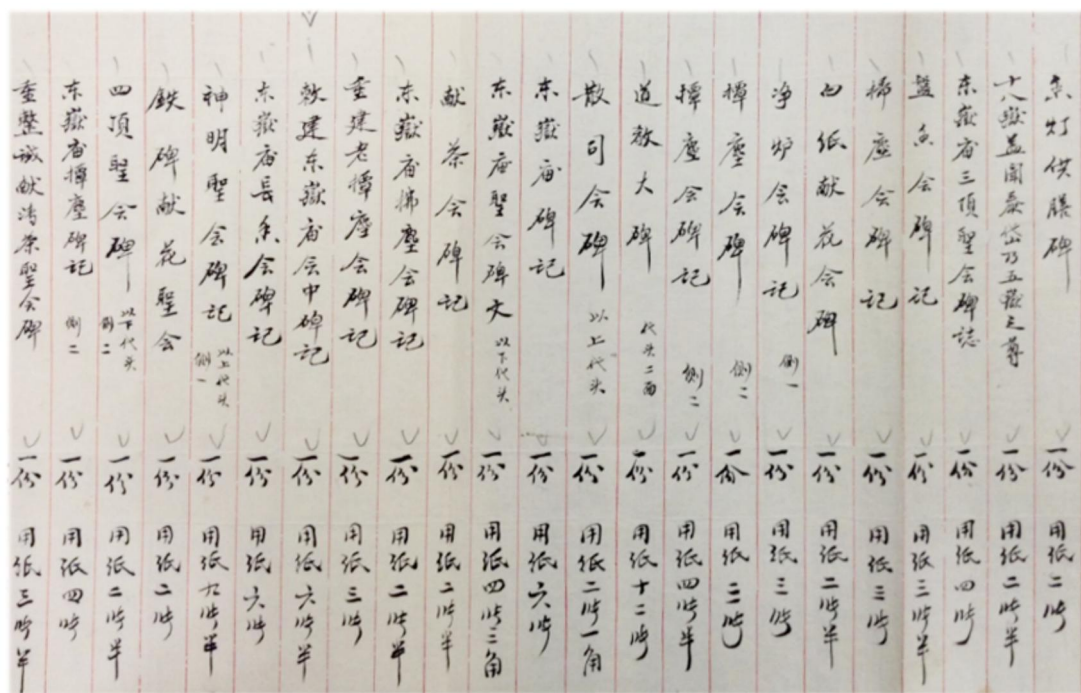 糸灯供膳碑 一份 用纸二张
十八嶽盖闻泰岱乃五嶽之尊 一份 用纸二张半
东嶽庙三顶聖会碑誌 一份 用纸四张
盖鱼会碑记 一份 用纸三张半
掸塵会碑记 一份 用纸三张
白纸献花会碑 一份 用纸二张半
净炉会碑记 侧一 一份 用纸三张
掸塵会碑 侧二 一份 用纸三张
掸塵会碑记 侧二 一份 用纸四张半
道教大碑 代头二面 一份 用纸十二张
散司会碑 以上代头 一份 用纸二张一角
东嶽庙碑记 一份 用纸六张
东嶽庙聖会碑文 以下代头 一份 用纸四张三角
献茶会碑记 一份 用纸二张半
东嶽庙拂塵会碑记 一份 用纸二张半
重建老掸塵会碑记 一份 用纸三张
敕建东嶽庙会中碑记 一份 用纸六张半
东嶽庙長香会碑记 一份 用纸六张
神明聖会碑记 以上代头 侧一 一份 用纸九张半
鉄碑献花聖会 一份 用纸二张
四頂聖会碑 以下代头 侧二 一份 用纸二张半
东嶽庙掸塵碑记 侧二 一份 用纸四张
重整诚献清茶聖会碑 一份 用纸三张半